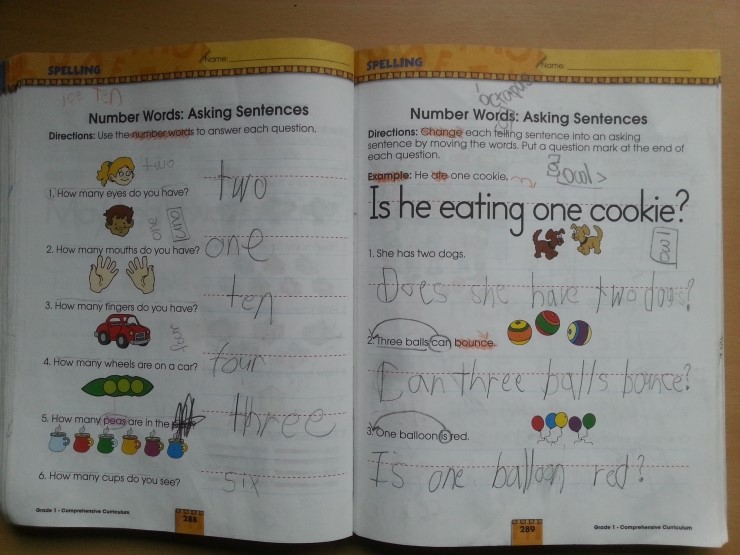 SPELLING
Name:
Ten
Number Words: Asking Sentences
Directions: Use the number words to answer each question.
two
1. How many eyes do you have?
two
one
2. How many mouths do you have?
one
3. How many fingers do you have?
ten
four
4. How many wheels are on a car?
four
5. How many peas are in the
three
6. How many cups do you see?
six
Grade 1 - Comprehensive Curriculum
288
SPELLING
Name:
Number Words: Asking Sentences
Directions: Change each telling sentence into an asking
sentence by moving the words. Put a question mark at the end of
each question.
Example: He ate one cookie.
owl
Is he eating one cookie?
1. She has two dogs.
owl
Does she have two dogs?
2. Three balls can bounce.
Can three balls bounce?
3. One balloon is red.
Is one balloon red?
289
Grade 1 - Comprehensive Curriculum